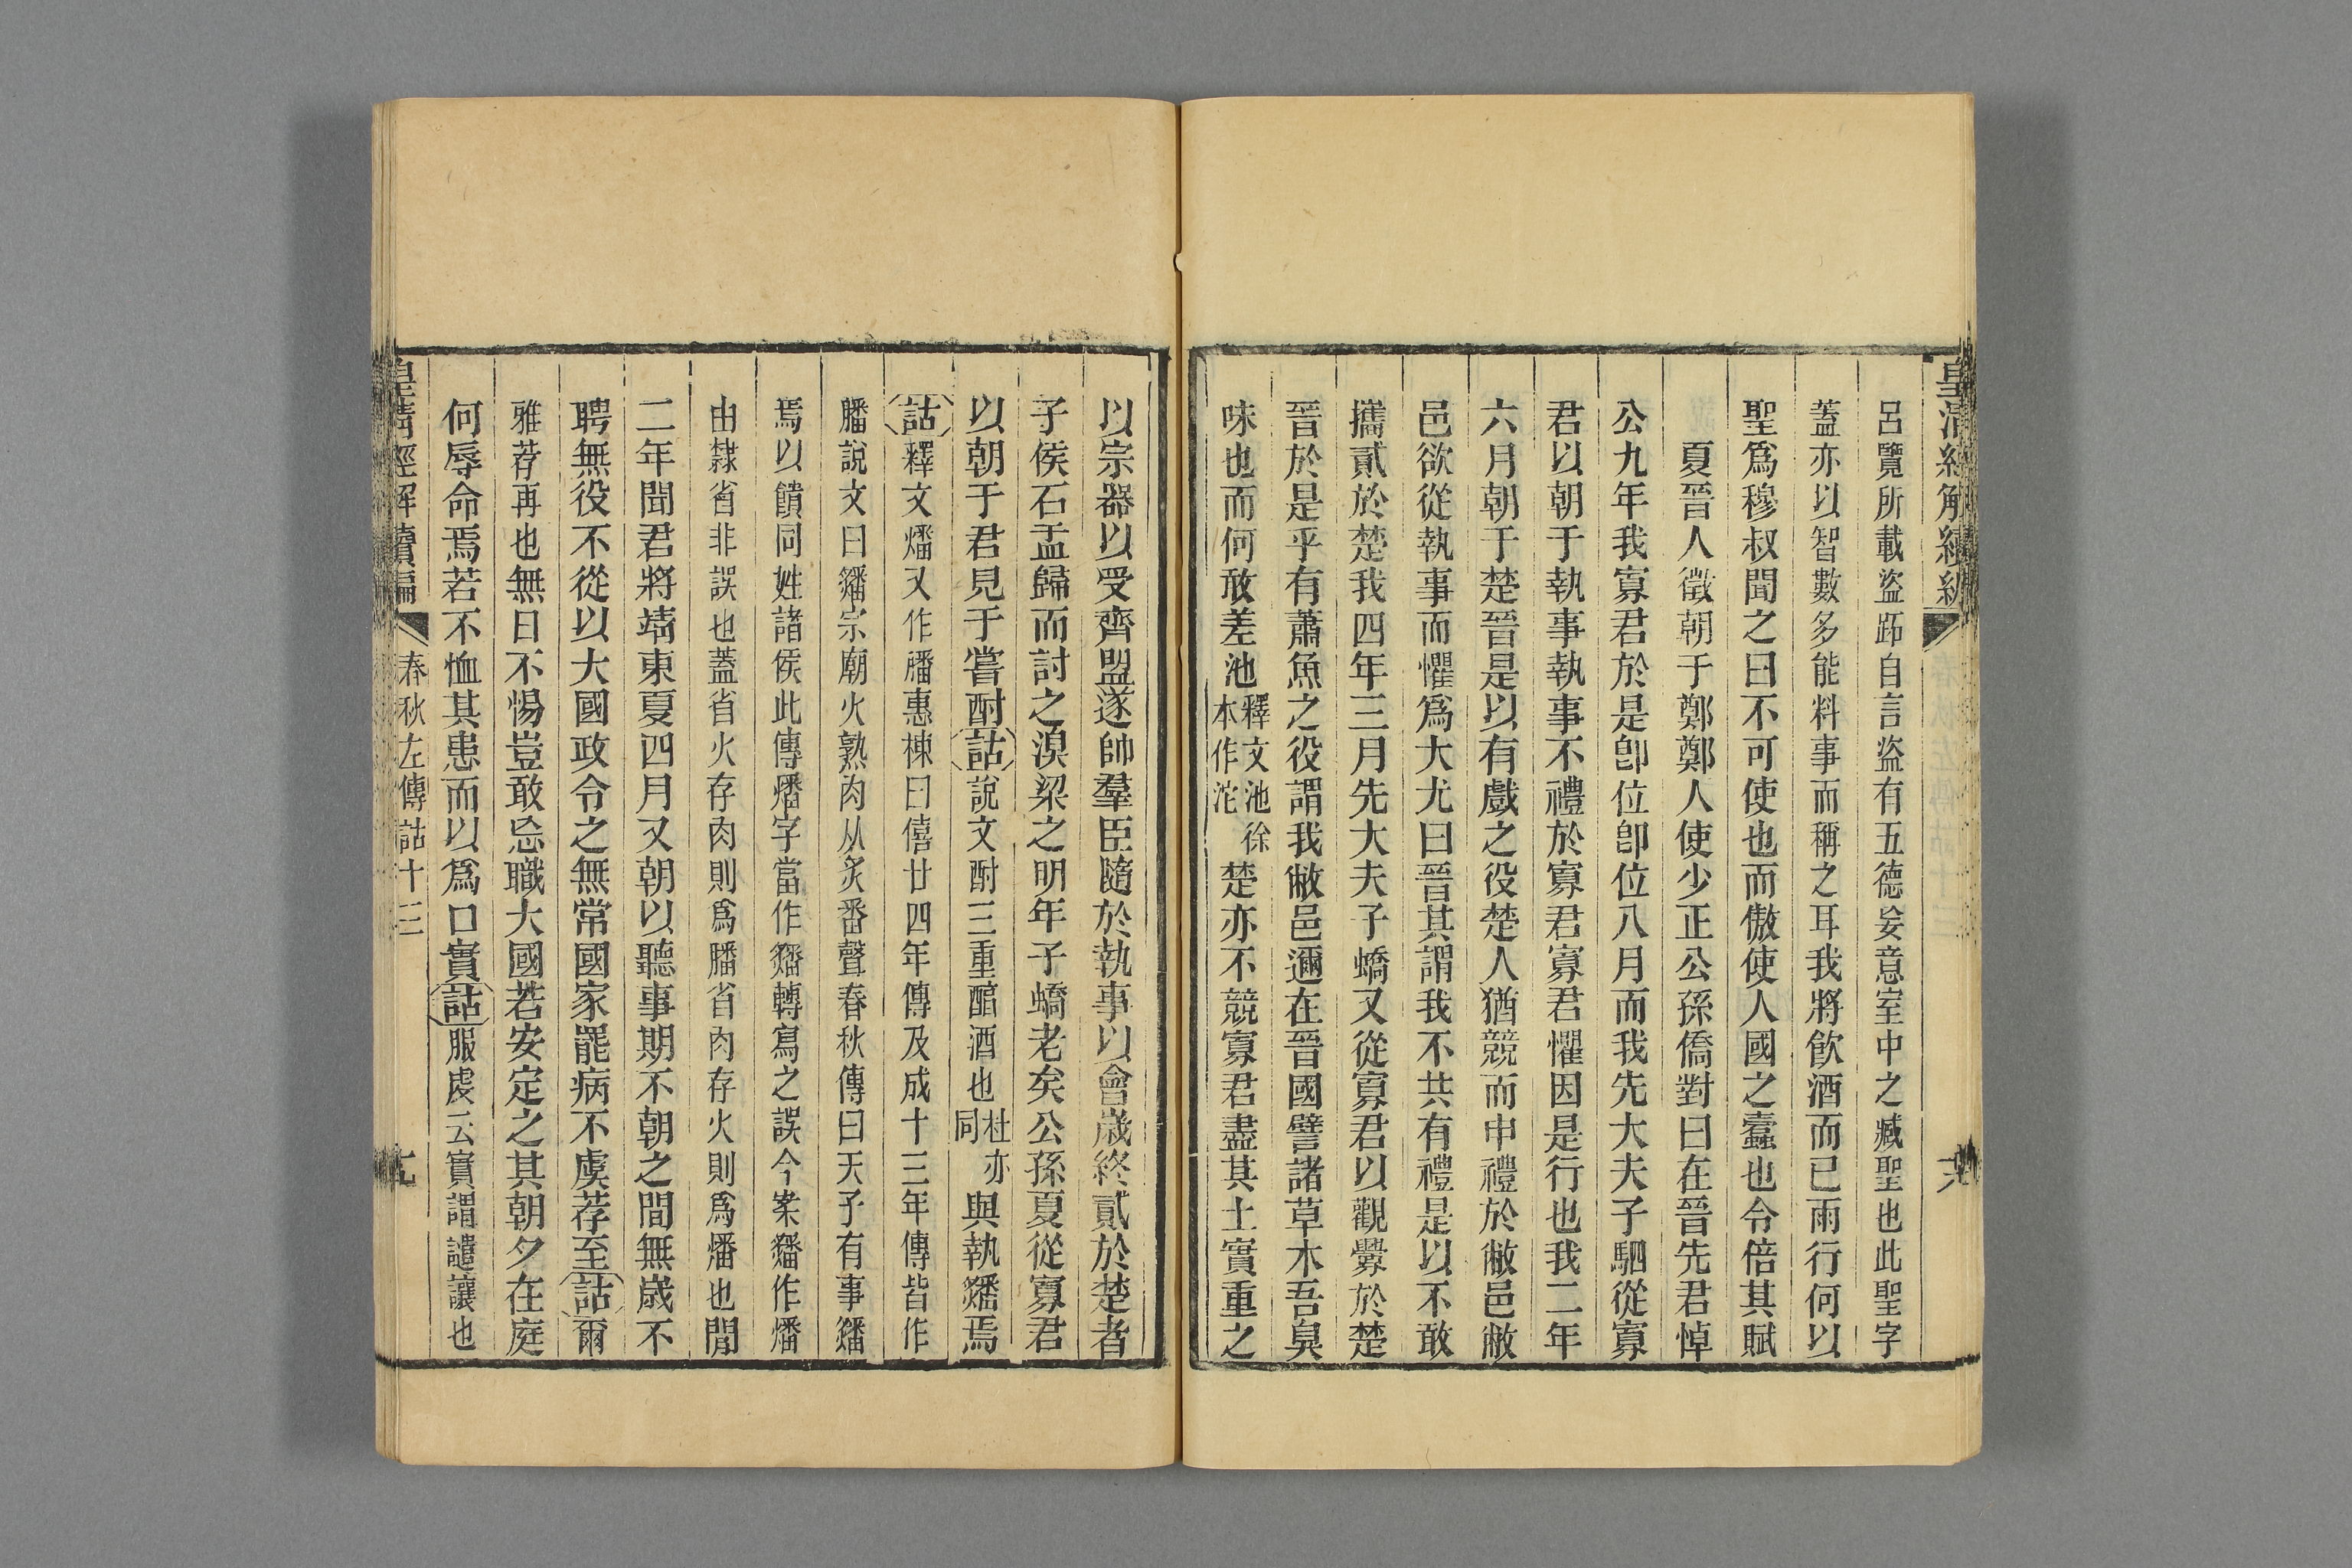 皇清經解續編
呂覽所載盜跖自言盜有五德妄意室中之臧聖也此聖字
蓋亦以智數多能料事而稱之耳我將飮酒而已雨行何以
聖爲穆叔聞之曰不可使也而傲使人國之蠹也令倍其賦
夏晉人徵朝于鄭鄭人使少正公孫僑對曰在晉先君悼
公九年我寡君於是卽位卽位八月而我先大夫子駟從寡
君以朝于執事執事不禮於寡君寡君懼因是行也我二年
六月朝于楚晉是以有戲之役楚人猶競而申禮於敝邑敝
邑欲從執事而懼爲大尤曰晉其謂我不共有禮是以不敢
攜貳於楚我四年三月先大夫子蟜又從寡君以觀釁於楚
晉於是乎有蕭魚之役謂我敝邑邇在晉國譬諸草木吾臭
味也而何敢差池釋文池徐本作沱楚亦不競寡君盡其土實重之
以宗器以受齊盟遂帥羣臣隨於執事以會歲終貳於楚者
子侯石盂歸而討之湨梁之明年子蟜老矣公孫夏從寡君
以朝于君見于嘗酎詁說文酎三重醞酒也杜亦同與執䊩焉
詁釋文燔又作膰惠棟曰僖廿四年傳及成十三年傳皆作
膰說文曰䊩宗廟火熟肉从炙番聲春秋傳曰天子有事䊩
焉以饋同姓諸侯此傳燔字當作䊩轉寫之誤今案䊩作燔
由隸省非誤也蓋省火存肉則爲膰省肉存火則爲燔也閒
二年聞君將靖東夏四月又朝以聽事期不朝之間無歲不
聘無役不從以大國政令之無常國家罷病不虞荐至詁爾
雅荐再也無日不惕豈敢忘職大國若安定之其朝夕在庭
何辱命焉若不恤其患而以爲口實詁服虔云實謂譴讓也
皇淸經解續編
春秋左傳詁十三